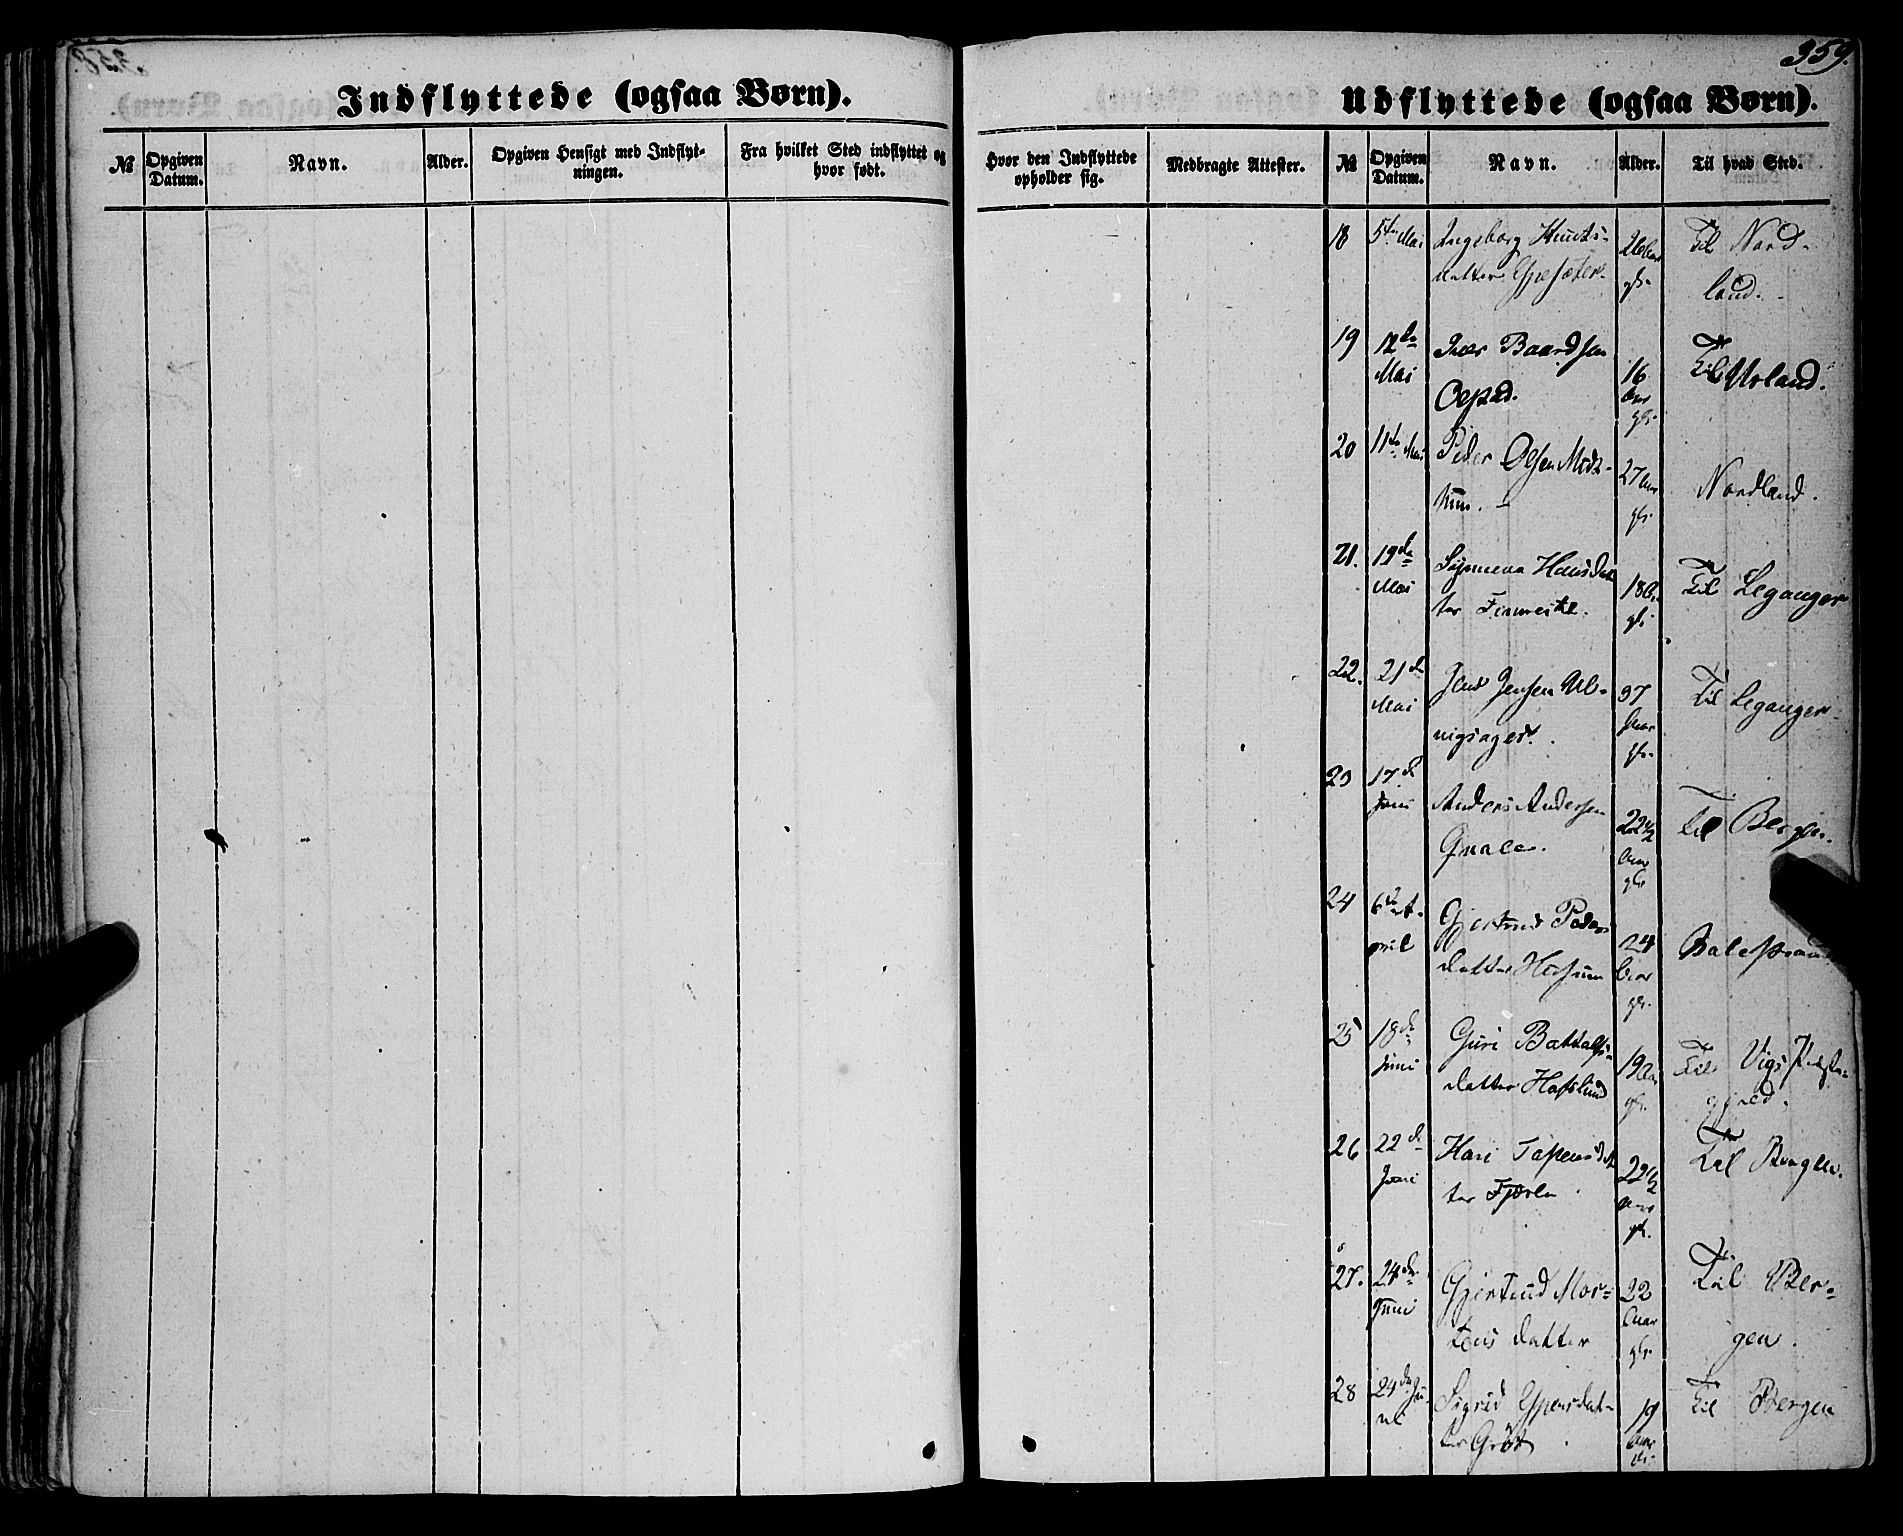 359.
Indflyttede (ogsaa Børn).
Udflyttede (ogsaa Børn).
№
Opgiven
Datum.
Navn.
Alder.
Opgiven Hensigt med Indflyt-
ningen.
Fra hvilket Sted indflyttet og
hvor født.
Hvor den Indflyttede
opholder sig.
Medbragte Attester.
№
Opgiven
Datum.
Navn.
Alder.
Til hvad Sted.
18 5te Mai Ingeborg Knuts- 26 Aar Til Nord-
datter gl. land.
19 12te Iver Baardsen 16 Til Urland.
Mai Aar
gl.
20 11te Mai Peder Olsen 27 Aar Nordland.
gl.
21. 19de Synneva Hansdat 18 Til Leganger
Mai ter gl.
22. 21de Jens Jensen 37 Til Leganger
Mai Aar
gl.
23 17de Anders Andersen 22½ Til Bergen.
Juni Aar
gl.
24 6te A- Gjertrud Peders 24 Balestrand
pril datter Aar
gl.
25 18de Guri 19 Aar Til Vigs Præste-
Juni datter Hafslund gl. gjeld.
26 22de Kari 22½ Til Bergen.
Juni ter Fjærla Aar
gl.
27. 24de Gjertrud Mor- 22 Til Ber-
Juni tens datter Aar gen.
gl.
28 24de Ju- Sigrid Espensdat- 19 Til Bergen
ni ter Aar
gl.